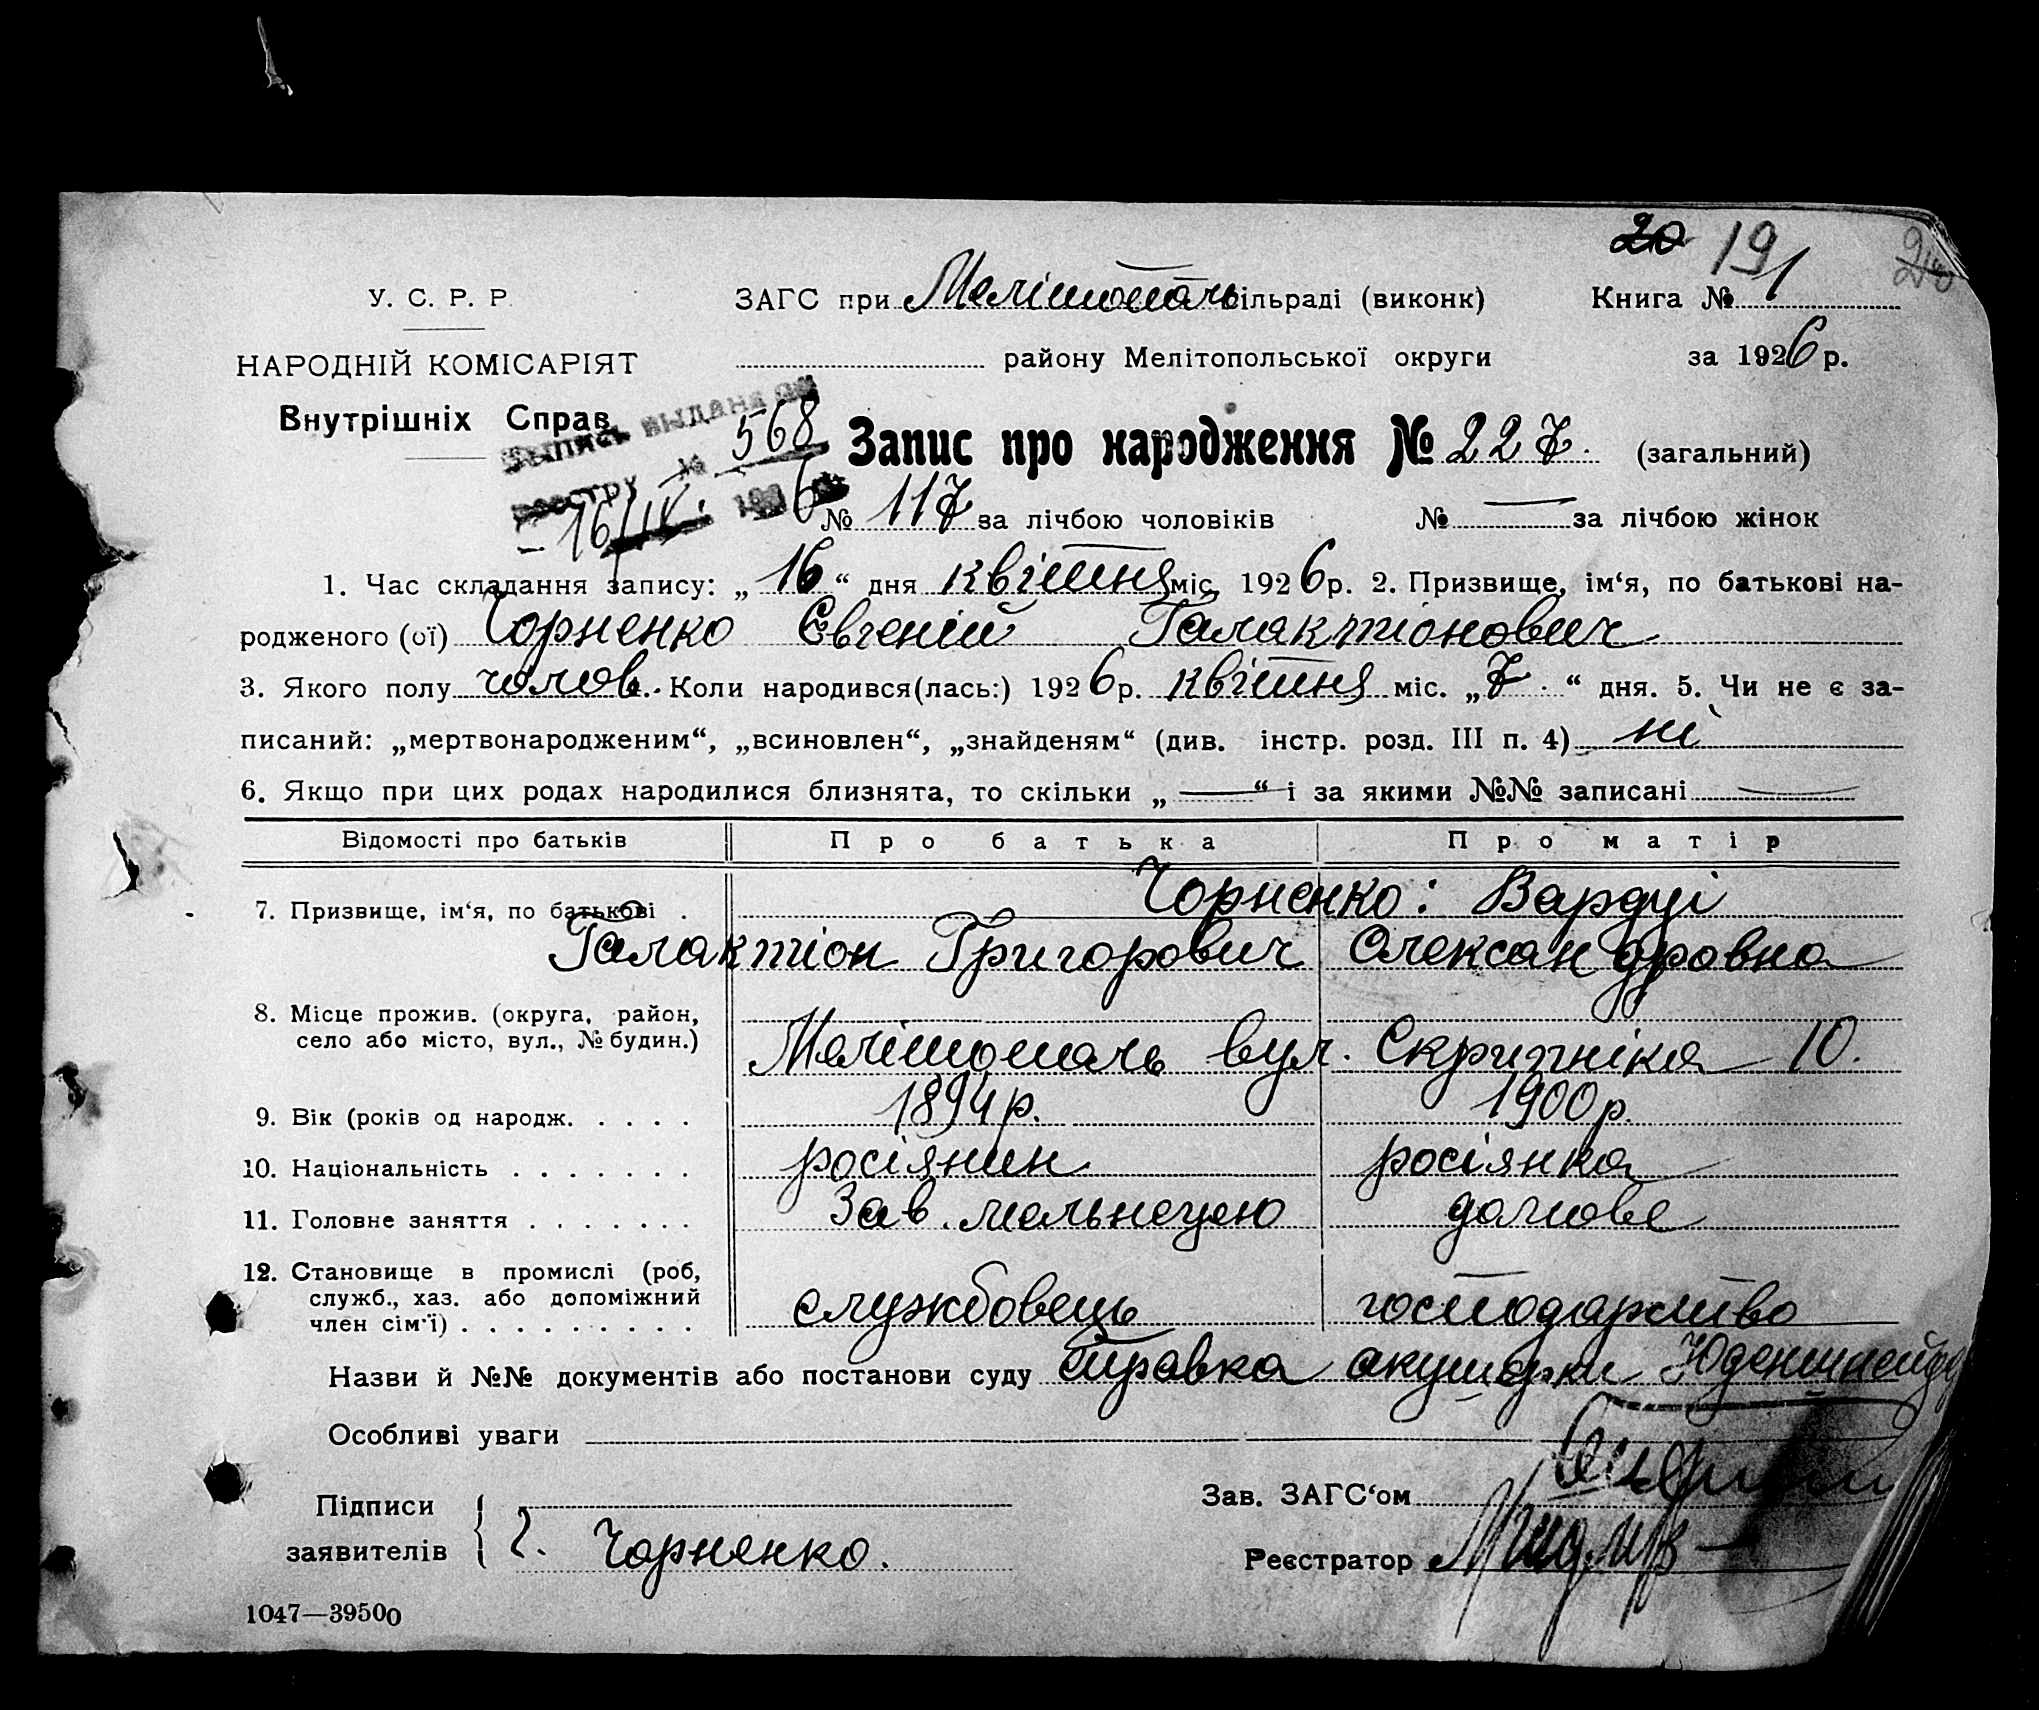 20 19 20
У. С. Р. Р. ЗАГС при Мелітополь сільраді (виконк) Книга № 1
НАРОДНІЙ КОМІСАРІЯТ районy Мелітопольської округи за 1926 р.
Внутрішніх Справ
Выпись выдана по
реестру № 568
16/IV. 1926
Запис про народження № 227. (загальний)
№ 117 за лічбою чоловіків № — за лічбою жінок
1. Час складання запису: „16“ дня квітня міс. 1926 р. 2. Призвище, ім‘я, по батькові на-
родженого (ої) Чорненко Євгеній Галактіонович
3. Якого полу чолов. Коли народився(лась:) 1926 р. квітня міс. „7“ дня. 5. Чи не є за-
писаний: „мертвонародженим“, „всиновлен“, „знайденям“ (див. інстр. розд. III п. 4) ні
6. Якщо при цих родах народилися близнята, то скільки „—“ і за якими №№ записані —
Відомості про батьків Про батька Про матір
7. Призвище, ім‘я, по батькові . Чорненко: Вардуі
Галактіон Григорович Олександровна
8. Місце прожив. (округа, район,
село або місто, вул., № будин.) Мелітополь вул. Скрипніка 10.
9. Вік (років од народж. . . . . 1894 р. 1900 р.
10. Національність . . . . . . . росіянин росіянка
11. Головне заняття . . . . . . . Зав. мельнецею домове
12. Становище в промислі (роб,
служб., хаз. або допоміжний
член сім‘ї) . . . . . . . . . службовець господарство
Назви й №№ документів або постанови суду справка акушерки
Особливі уваги
Підписи Зав. ЗАГС‘ом
заявителів Г. Чорненко. Реєстратор
1047—39500